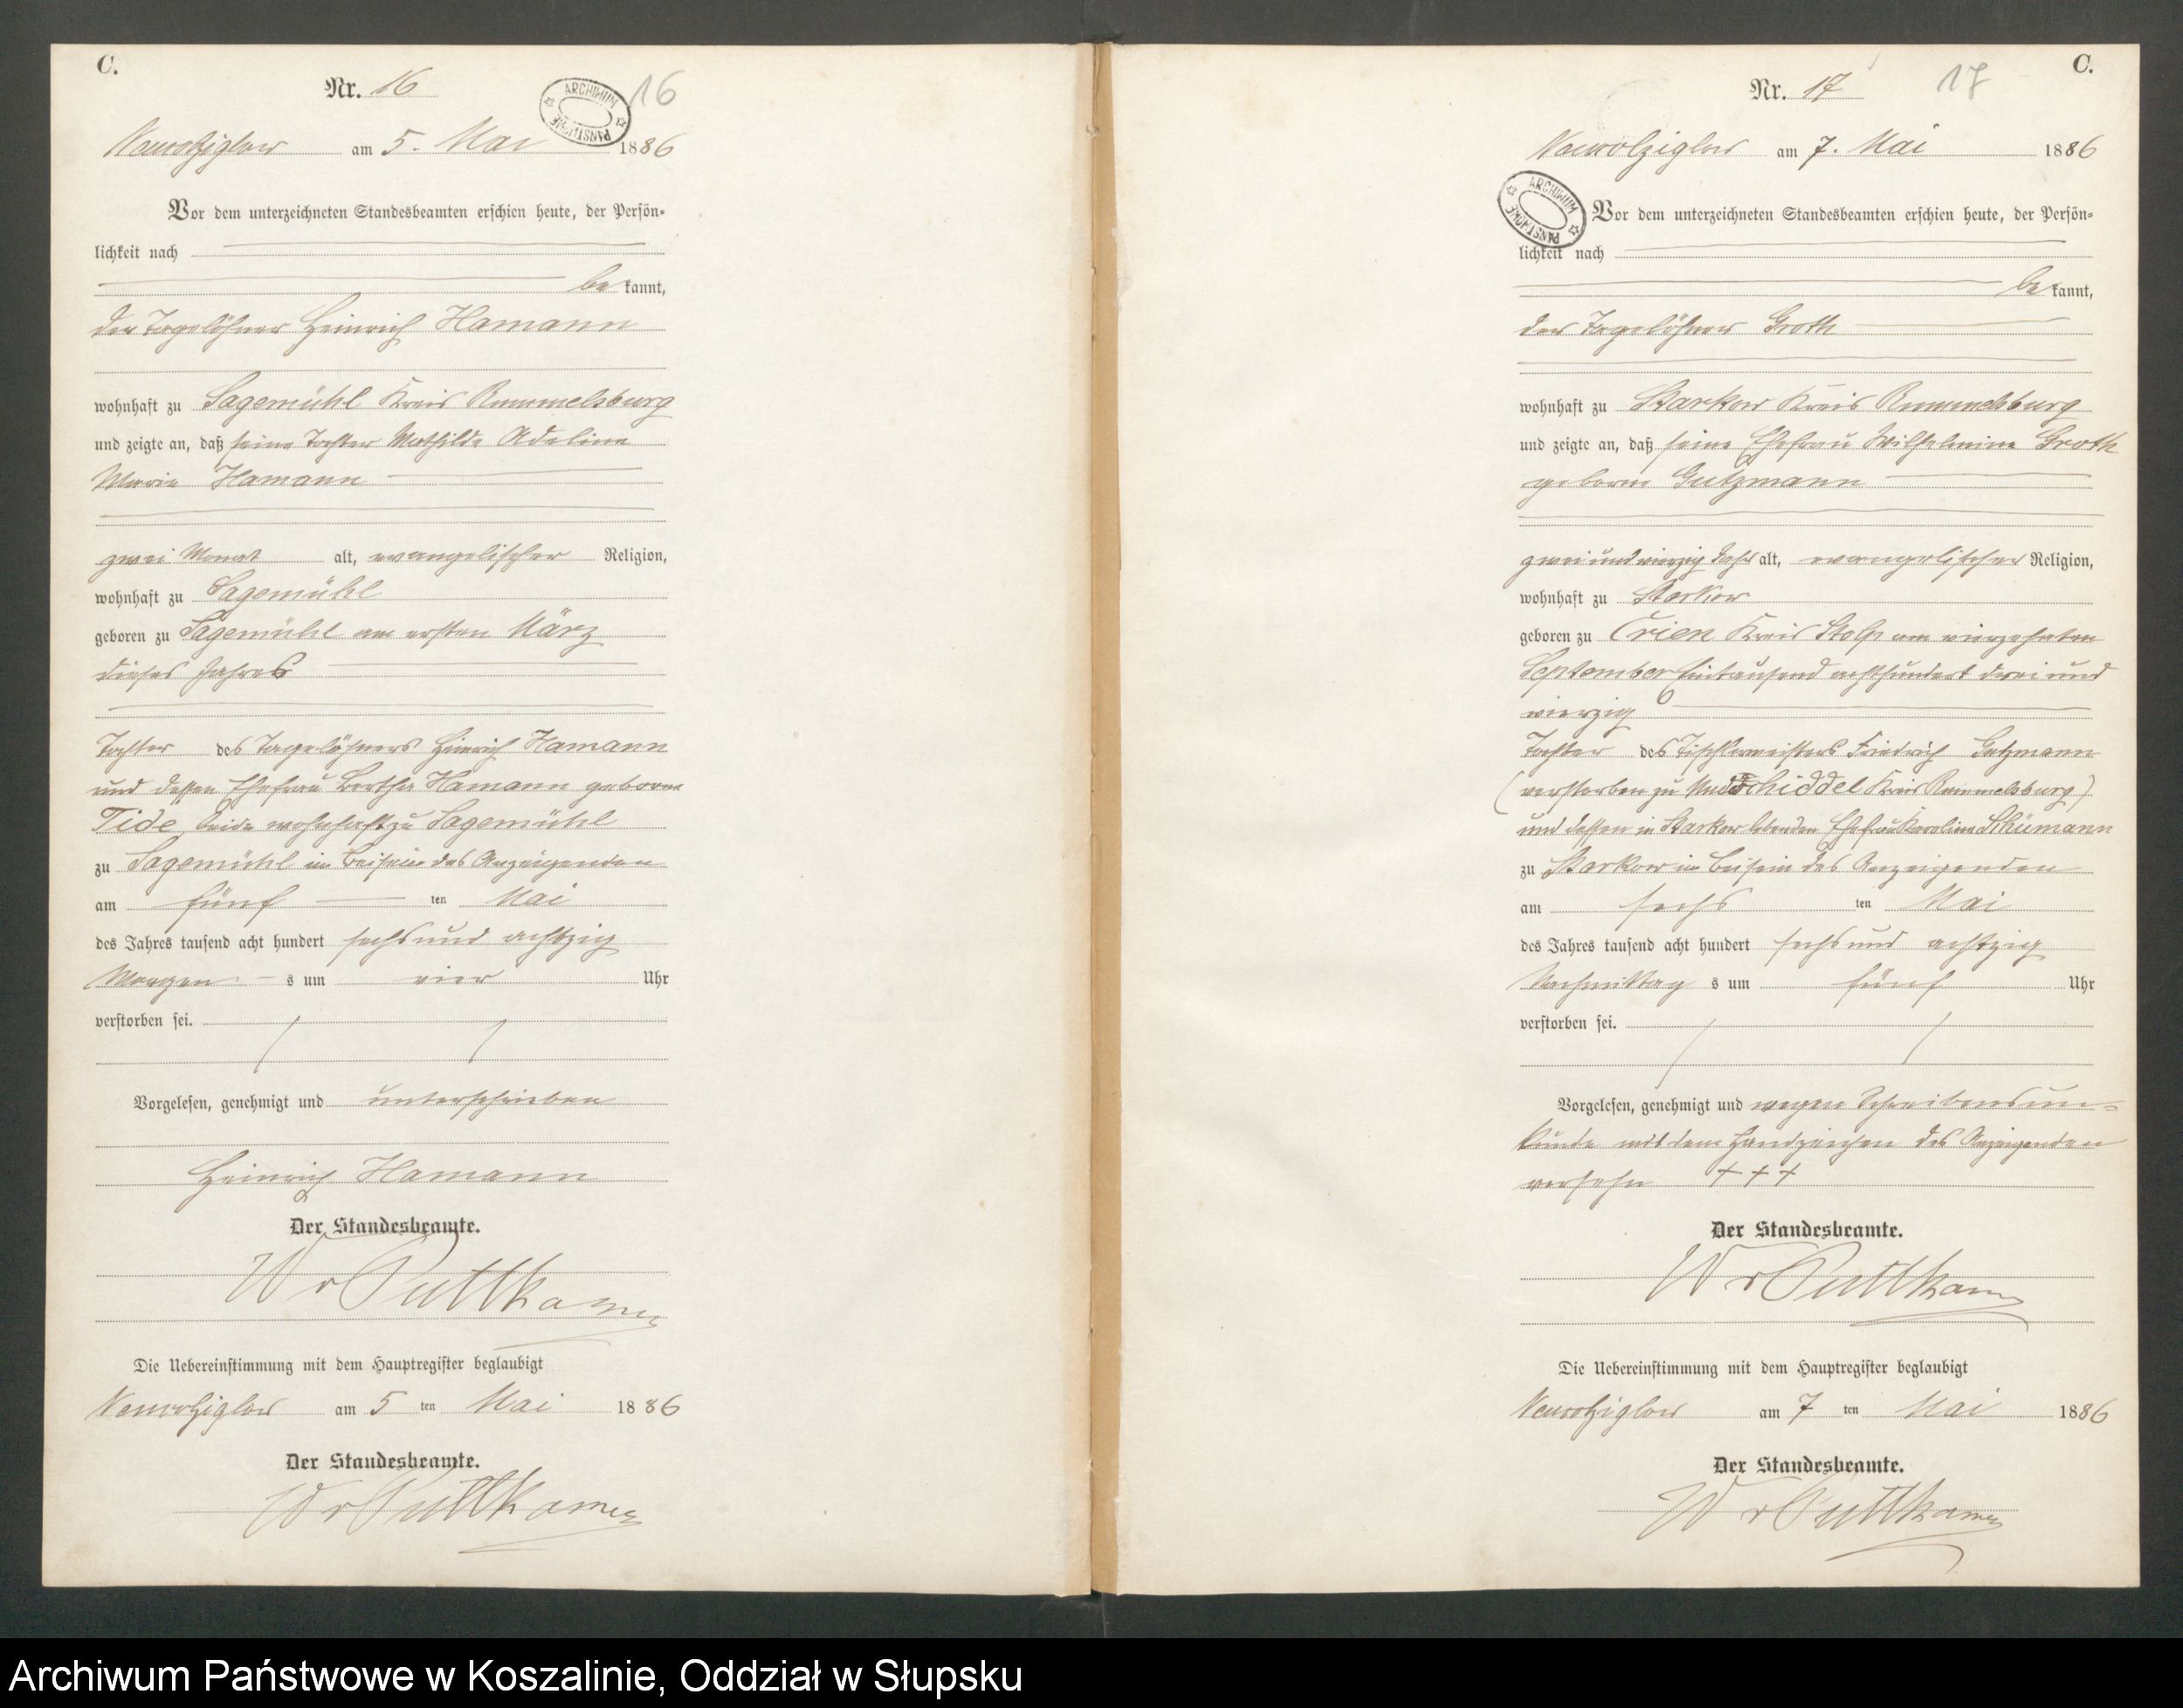 C.
Nr. 16
16
ARCHIWUM PAŃSTWOWE
Neuwolziglow am 5. Mai 1886
Vor dem unterzeichneten Standesbeamten erschien heute, der Persön-
lichkeit nach
be kannt,
der Tagelöhner Heinrich Hamann
wohnhaft zu Sagemühl Kreis Rummelsburg
und zeigte an, daß seine Tochter Mathilde Adeline
Marie Hamann
zwei Monat alt, evangelischer Religion,
wohnhaft zu Sagemühl
geboren zu Sagemühl am ersten März
dieses Jahres
Tochter des Tagelöhners Heinrich Hamann
und dessen Ehefrau Bertha Hamann geborne
Tide, beide wohnhaft zu Sagemühl
zu Sagemühl im Beisein des Anzeigenden
am fünf ten Mai
des Jahres tausend acht hundert sechs und achtzig
Morgen s um vier Uhr
verstorben sei.
Vorgelesen, genehmigt und unterschrieben
Heinrich Hamann
Der Standesbeamte.
W v Puttkamer
Die Uebereinstimmung mit dem Hauptregister beglaubigt
Neuwolziglow am 5 ten Mai 1886
Der Standesbeamte.
W v Puttkamer
C.
Nr. 17
17
ARCHIWUM PAŃSTWOWE
Neuwolziglow am 7. Mai 1886
Vor dem unterzeichneten Standesbeamten erschien heute, der Persön-
lichkeit nach
be kannt,
der Tagelöhner Groth
wohnhaft zu Starkow Kreis Rummelsburg
und zeigte an, daß seine Ehefrau Wilhelmine Groth
geborne Gutzmann
zwei und vierzig Jahr alt, evangelischer Religion,
wohnhaft zu Starkow
geboren zu Crien Kreis Stolp am vierzehnten
September Eintausend achthundert drei und
vierzig
Tochter des Tischlermeisters Friedrich Gutzmann
(verstorben zu Muddschiddel Kreis Rummelsburg)
und dessen in Starkow lebenden Ehefrau Karoline Schümann
zu Starkow im Beisein des Anzeigenden
am sechs ten Mai
des Jahres tausend acht hundert sechs und achtzig
Nachmittag s um fünf Uhr
verstorben sei.
Vorgelesen, genehmigt und wegen Schreibensun-
kunde mit dem Handzeichen des Anzeigenden
versehn + + +
Der Standesbeamte.
W v Puttkamer
Die Uebereinstimmung mit dem Hauptregister beglaubigt
Neuwolziglow am 7 ten Mai 1886
Der Standesbeamte.
W v Puttkamer
Archiwum Państwowe w Koszalinie, Oddział w Słupsku